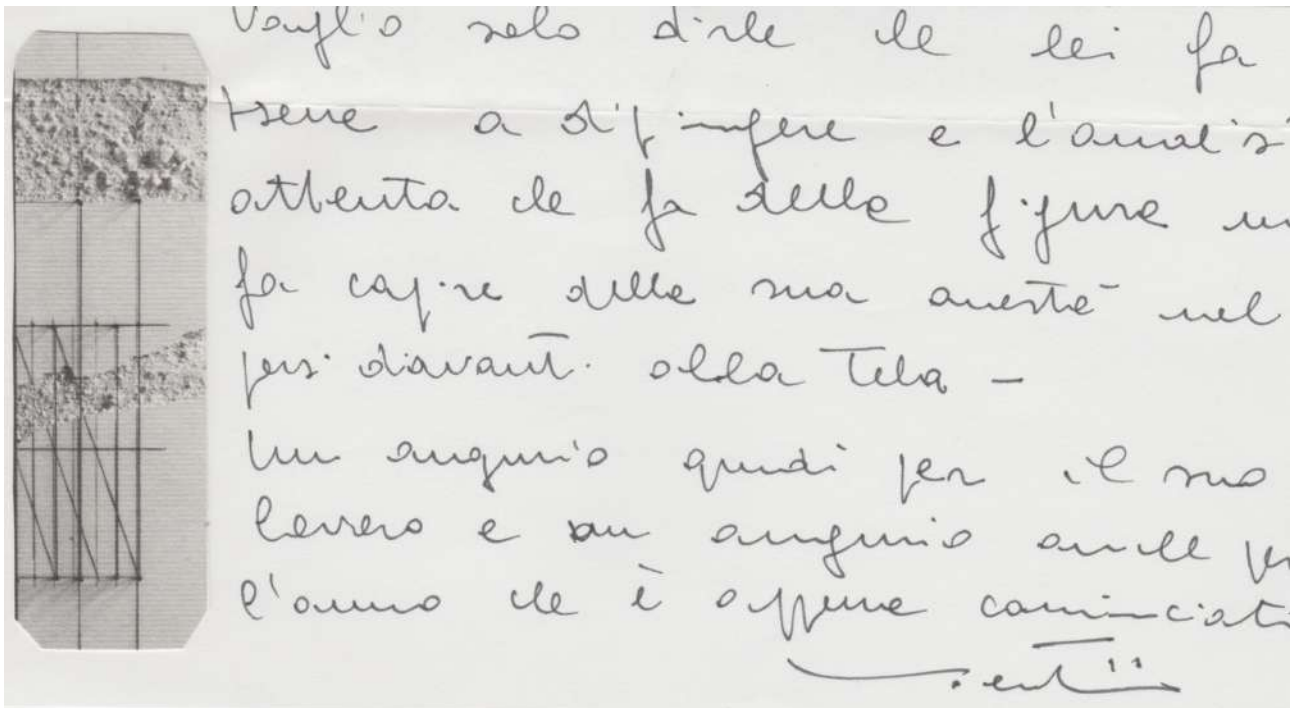 Voglio solo dirle che lei fa
bene a dipingere e l'analisi
attenta che fa della figura
fa capire della sua onestà nel
porsi davanti alla Tela –
Un augurio quindi per il suo
lavoro e un augurio anche
l'anno che è appena cominciat